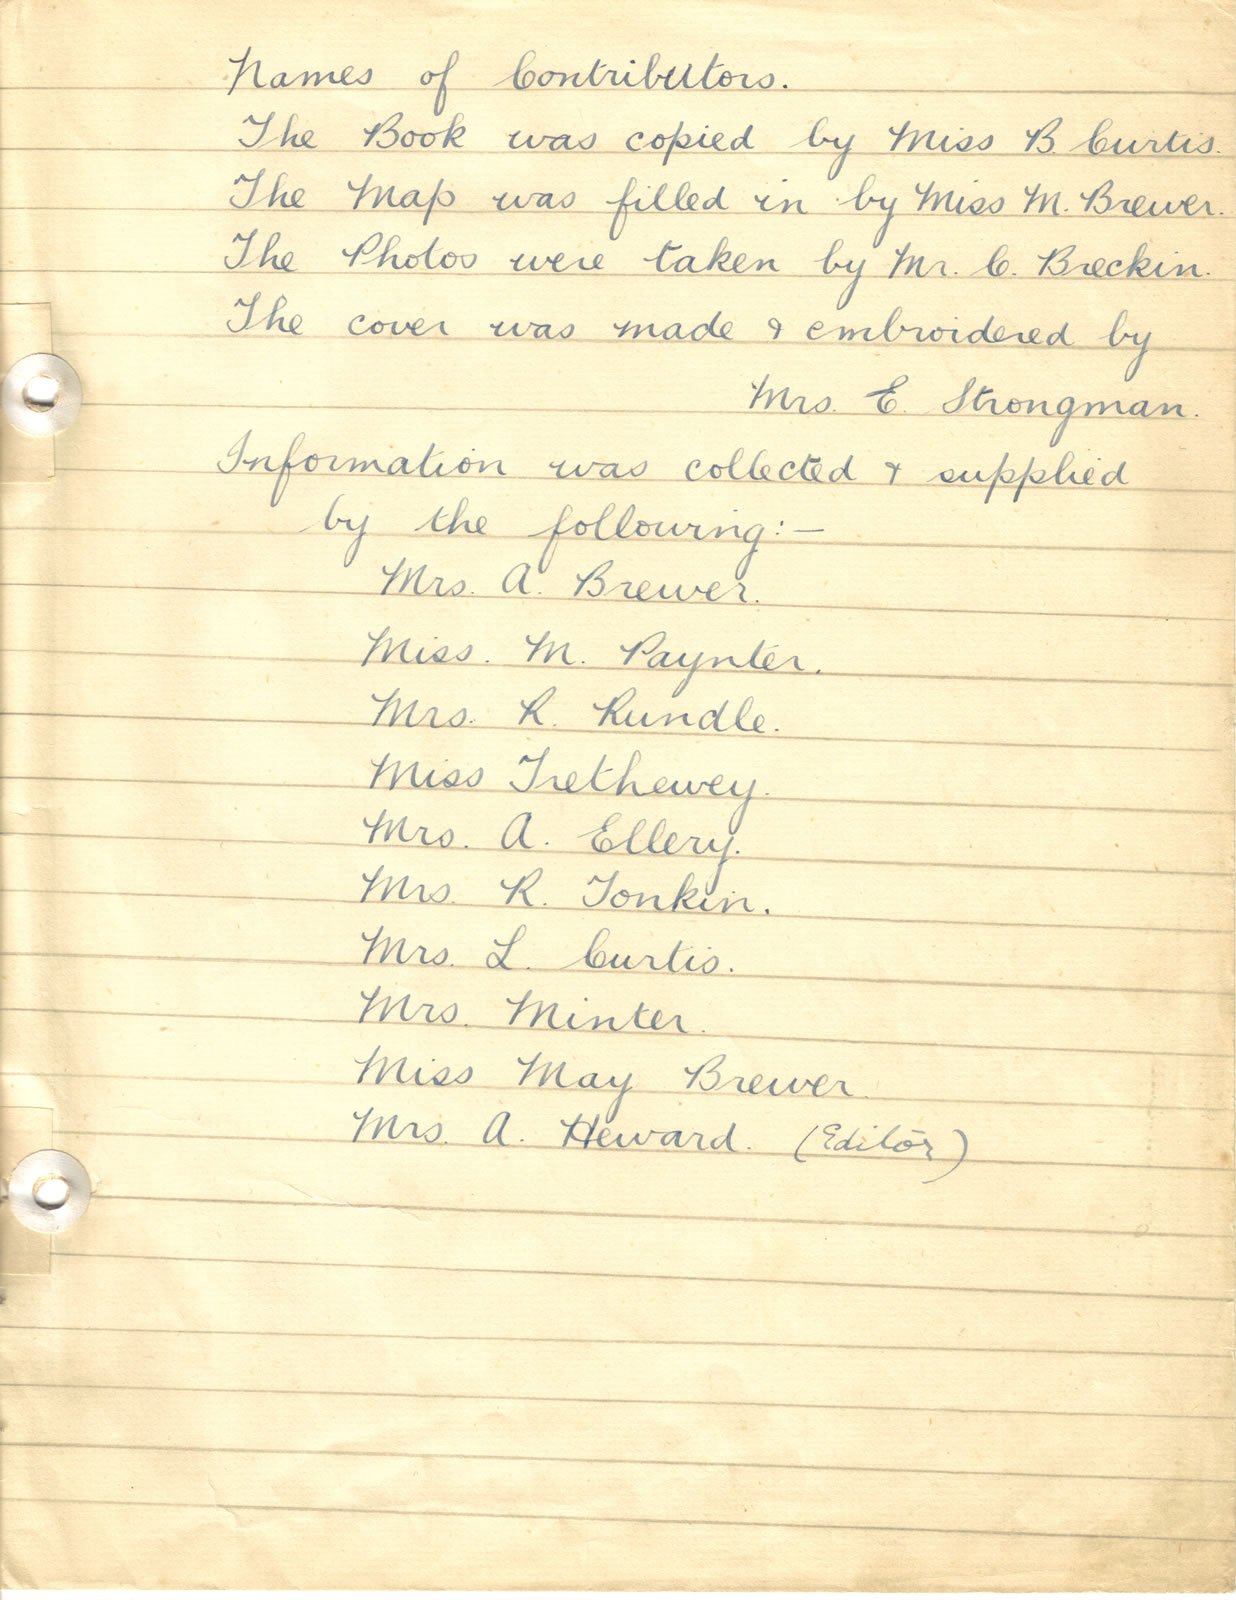 Names of Contributors.
The Book was copied by Miss B. Curtis.
The Map was filled in by Miss M. Brewer.
The Photos were taken by Mr. C. Breckin.
The cover was made & embroidered by
Mrs. E. Strongman.
Information was collected & supplied
by the following:—
Mrs. A. Brewer.
Miss. M. Paynter.
Mrs. R. Rundle.
Miss Trethewey.
Mrs. A. Ellery.
Mrs. R. Tonkin.
Mrs. L. Curtis.
Mrs. Minter.
Miss May Brewer.
Mrs. A. Heward. (Editor)